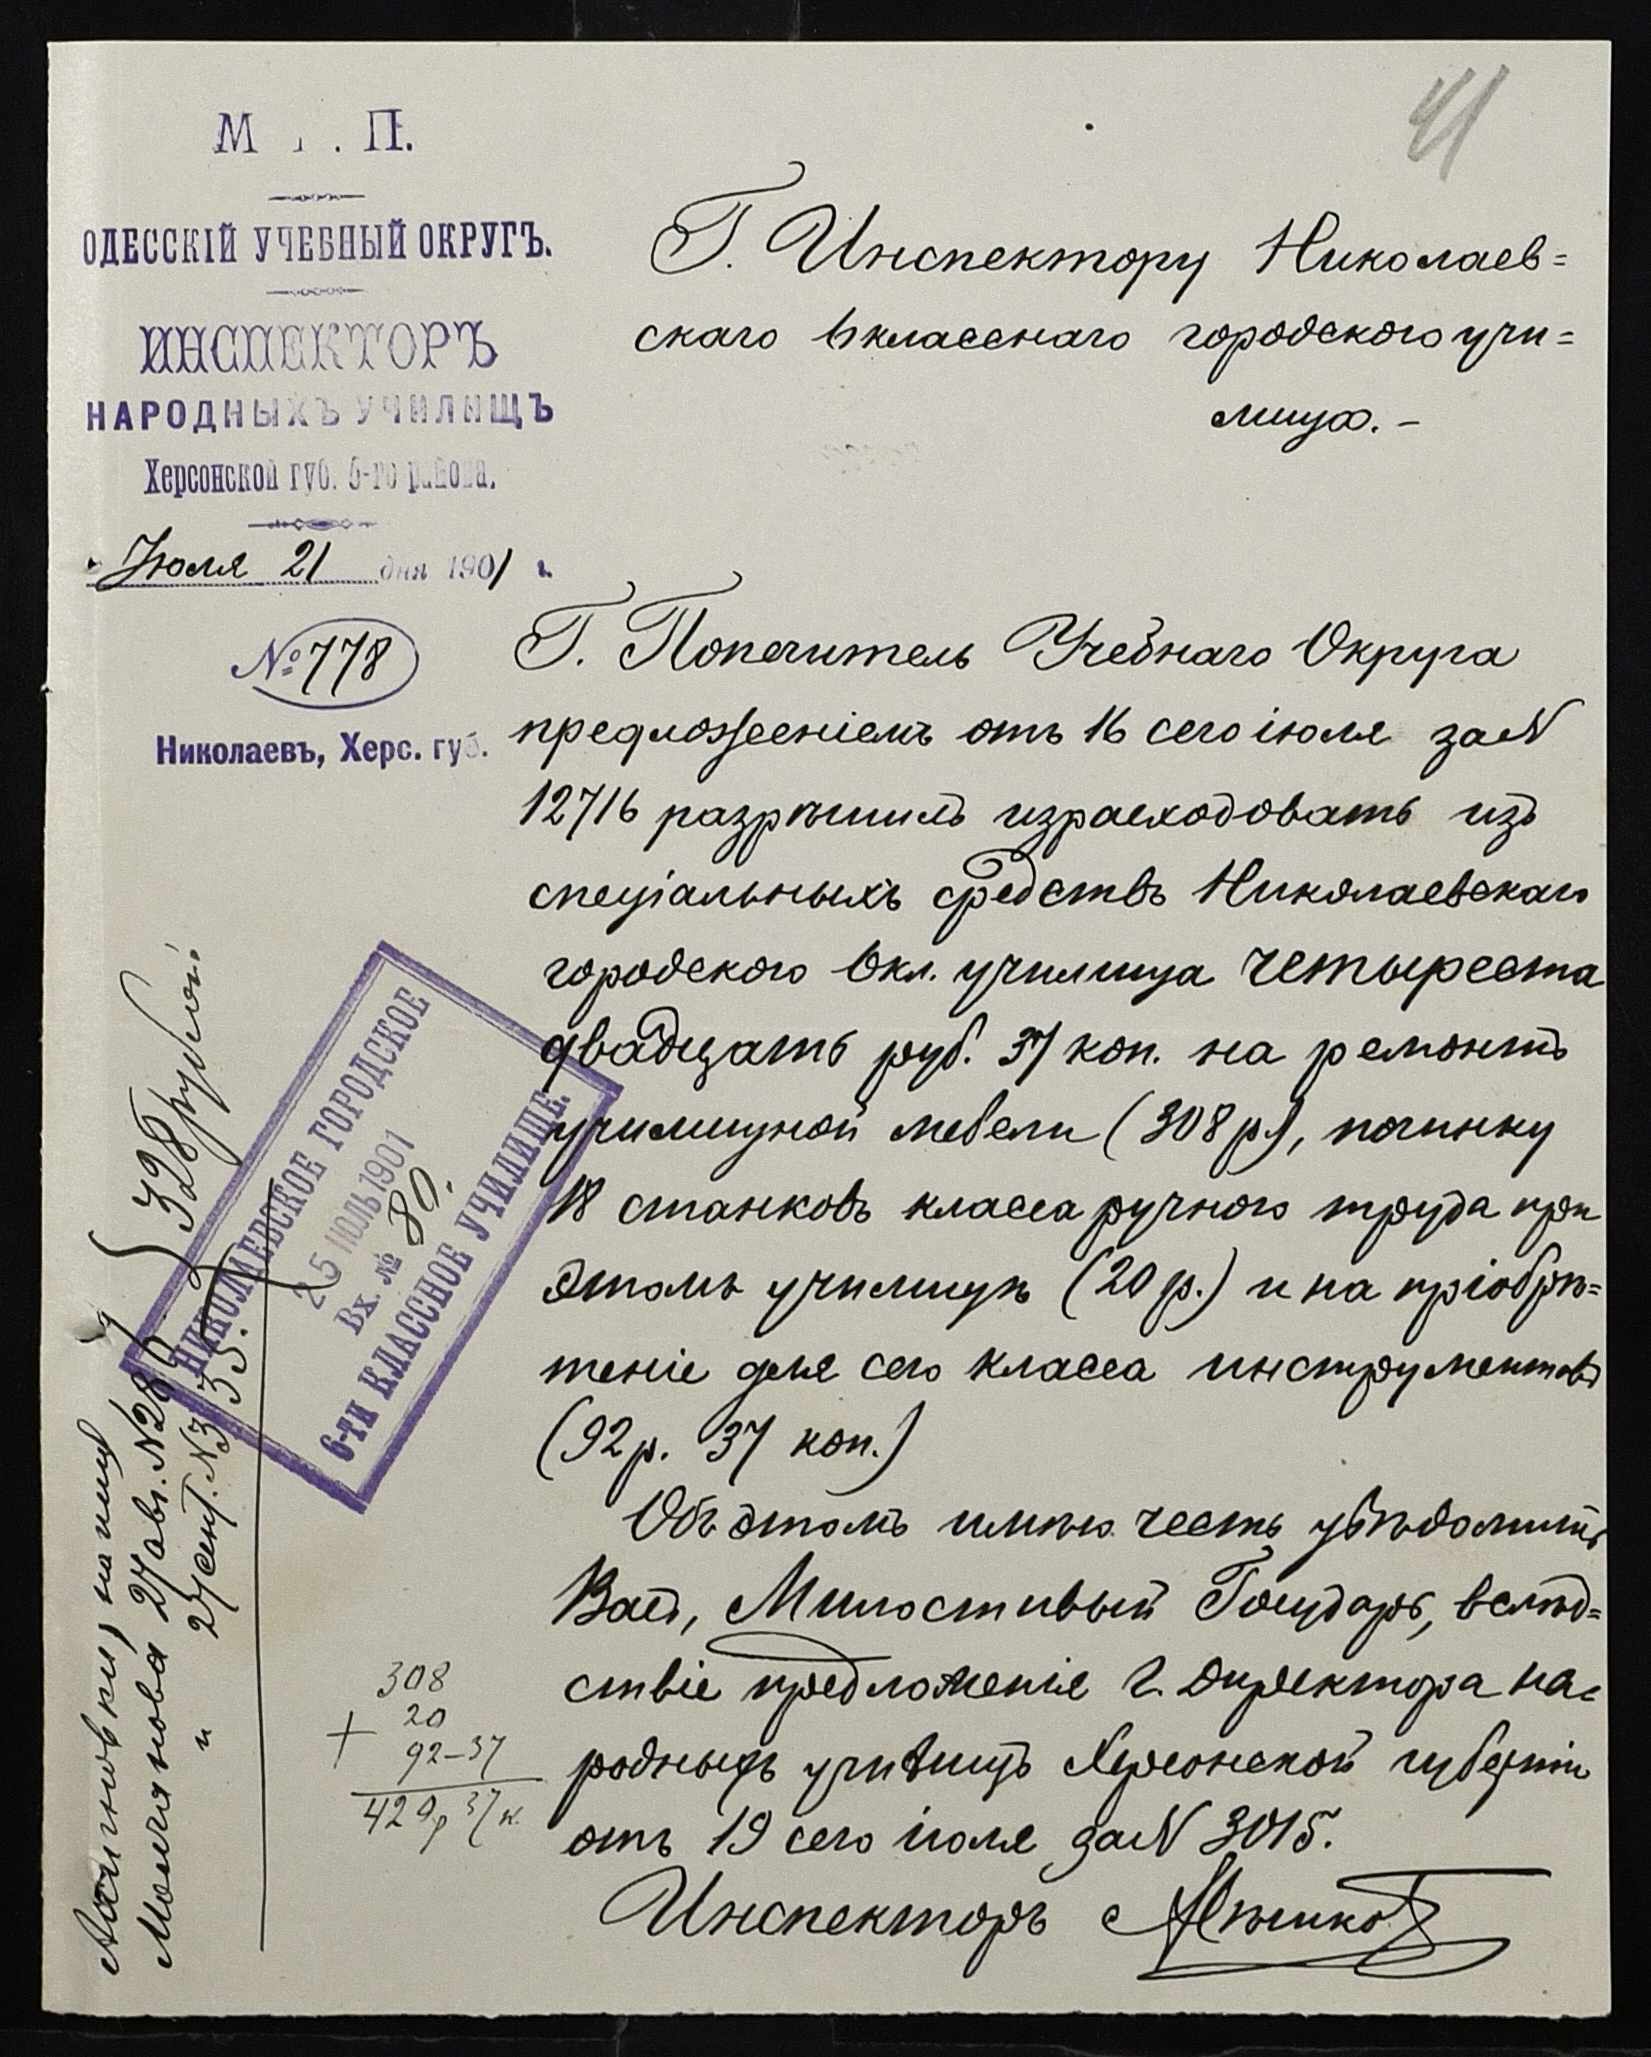 41
М . . П.
ОДЕССКІЙ УЧЕБНЫЙ ОКРУГЪ.
ИНСПЕКТОРЪ
НАРОДНЫХЪ УЧИЛИЩЪ
Херсонской губ. 6-го района.
Іюля 21 дня 1901 г.
№ 778
Николаевъ, Херс. губ.
Г. Инспектору Николаев=
скаго 6 класснаго городского учи=
лища. –
Г. Попечитель Учебнаго Округа
предложеніемъ отъ 16 сего іюля за N
12716 разрѣшилъ израсходовать изъ
спеціальныхъ средствъ Николаевскаго
городского 6 кл. училища четыреста
двадцать руб. 37 коп. на ремонтъ
училищной мебели (308 р.), починку
18 станковъ класса ручного труда при
этомъ училищѣ (20 р.) и на пріобрѣ=
теніе для сего класса инструментовъ
(92 р. 37 коп.)
Объ этомъ имѣю честь увѣдомить
Васъ, Милостивый Государь, вслѣд=
ствіе предложенія г. Директора на=
родныхъ училищъ Херсонской губерніи
отъ 19 сего іюля за N 3015.
Инспекторъ
НИКОЛАЕВСКОЕ ГОРОДСКОЕ
25 ІЮЛЬ 1901
Вх. № 80.
6-ТИ КЛАССНОЕ УЧИЛИЩЕ.
Молчанова 27 авг. N 28
и 27 сент. N 335.
328 рублей
308
+ 20
92–37
420р 37к.